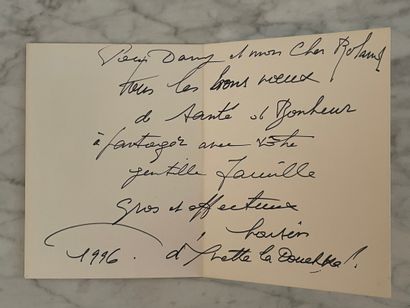 Pour Dany et mon Cher Roland
tous les bons voeux
de santé et Bonheur
à partager avec votre
gentille famille
Gros et affectueux
baisers
1996. d'Yvette la